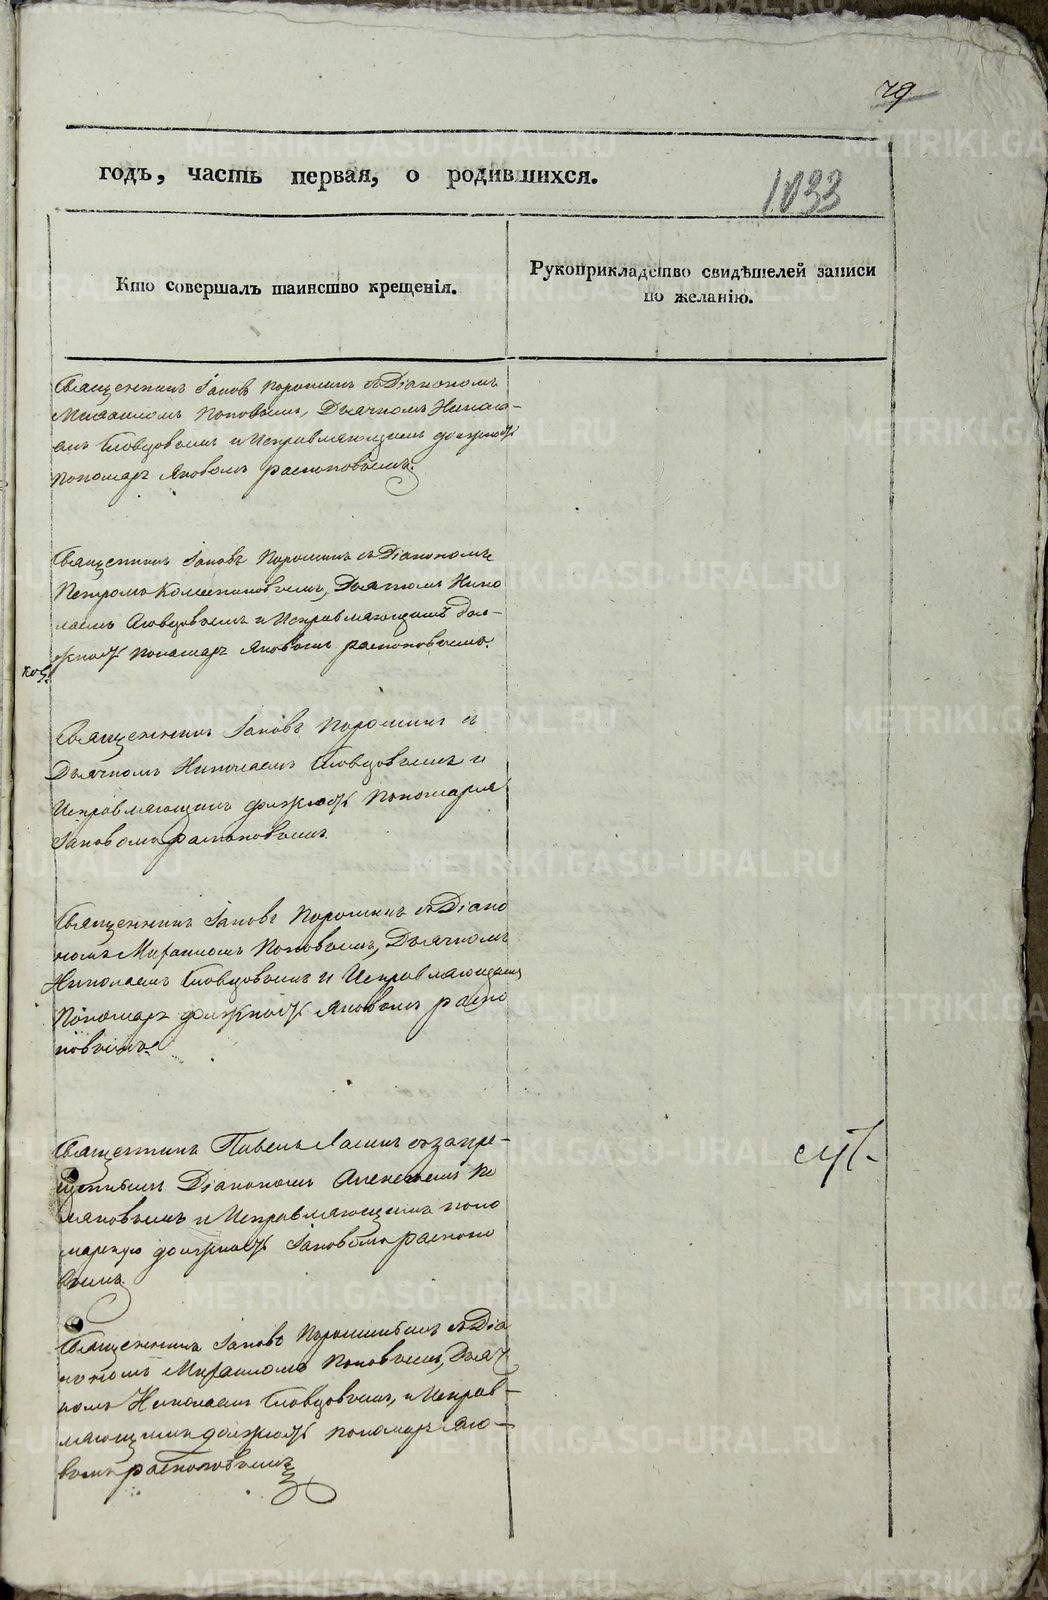 79
годъ, часть первая, о родившихся.
1033
Кто совершалъ таинство крещенія.
Рукоприкладство свидѣтелей записи
по желанію.
Священникъ Іаковъ Порошинъ съ Діакономъ
Михаиломъ Поповымъ, Дьячкомъ Никола-
емъ Словцовымъ и Исправляющимъ должность
пономаря Яковомъ распоповымъ.
Священникъ Іаковъ Порошинъ съ Діакономъ
Петромъ Дьячкомъ Нико
лаемъ Словцовымъ и Исправляющимъ дол-
жность пономаря Яковомъ распоповымъ.
Священникъ Іаковъ Порошинъ съ
Дьячкомъ Николаемъ Словцовымъ и
Исправляющимъ должность пономаря
Іаковомъ распоповымъ
Священникъ Іаковъ Порошинъ съ Діако
номъ Михаиломъ Поповымъ, Дьячкомъ
Николаемъ Словцовымъ и Исправляющимъ
пономаря должность Яковомъ распо
повымъ.
Священникъ Павелъ съ запре-
щеннымъ Діакономъ Алексеемъ По
ляковымъ и Исправляющимъ поно
марскую должность Іаковомъ распопо
вымъ
Священникъ Іаковъ съ Діа
кономъ Михаиломъ Поповымъ, Дьяч
комъ Николаемъ Словцовымъ, и Исправ-
ляющимъ должность пономаря Яко-
вомъ распоповымъ
METRIKI.GASO-URAL.RU